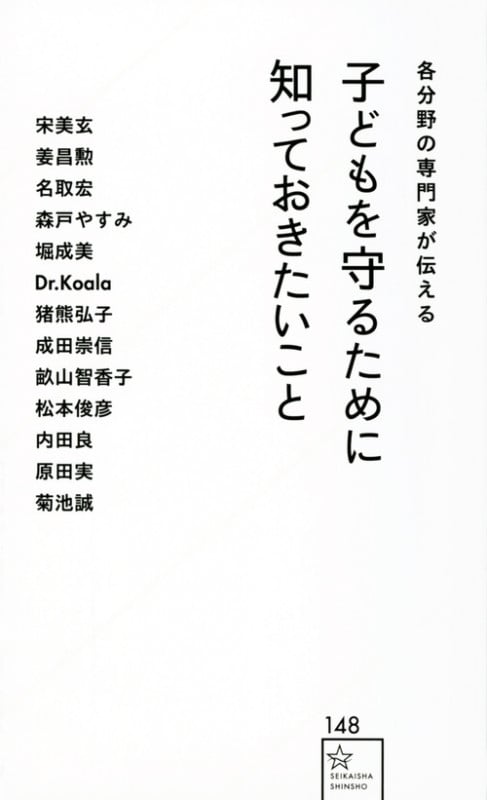 各分野の専門家が伝える
子どもを守るために
知っておきたいこと
宋美玄
姜昌勲
名取宏
森戸やすみ
堀成美
Dr.Koala
猪熊弘子
成田崇信
畝山智香子
松本俊彦
内田良
原田実
菊池誠
148
SEIKAISHA
SHINSHO